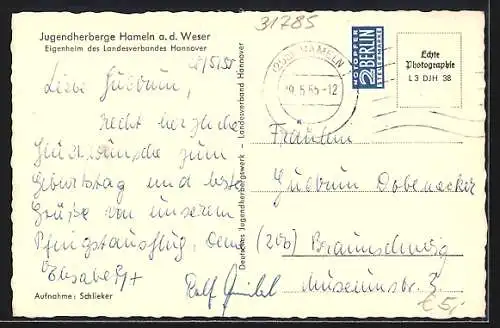 31785
Jugendherberge Hameln a. d. Weser
Eigenheim des Landesverbandes Hannover
Liebe Gudrun,
recht herzliche
Glückwünsche zum
Geburtstag und beste
Grüße von unserem
Pfingstausflug. Deine
Elisabeth
Rolf
Aufnahme: Schlieker
Deutsches Jugendherbergswerk - Landesverband Hannover
HAMELN
5.55-12
NOTOPFER
2 BERLIN
STEUERMARKE
Echte
Photographie
L 3 DJH 38
Fräulein
Gudrun Dobenecker
(20b) Braunschweig
Museumstr. 3.
€ 5,-